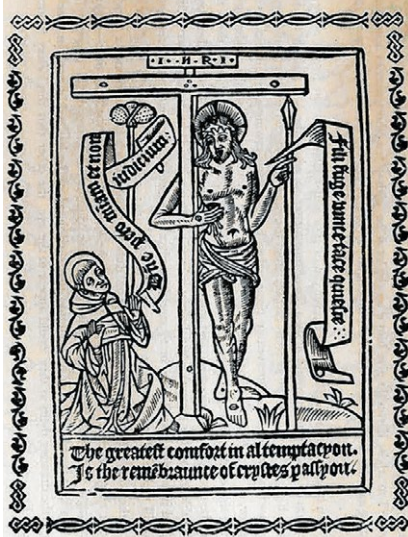 · I · N · R · I ·
Dne pro me meritis non
iudicium:
Fili fuge vince tace quiesce:
The greatest comfort in al temptacyon.
Is the remẽbraunce of crystes passyon.